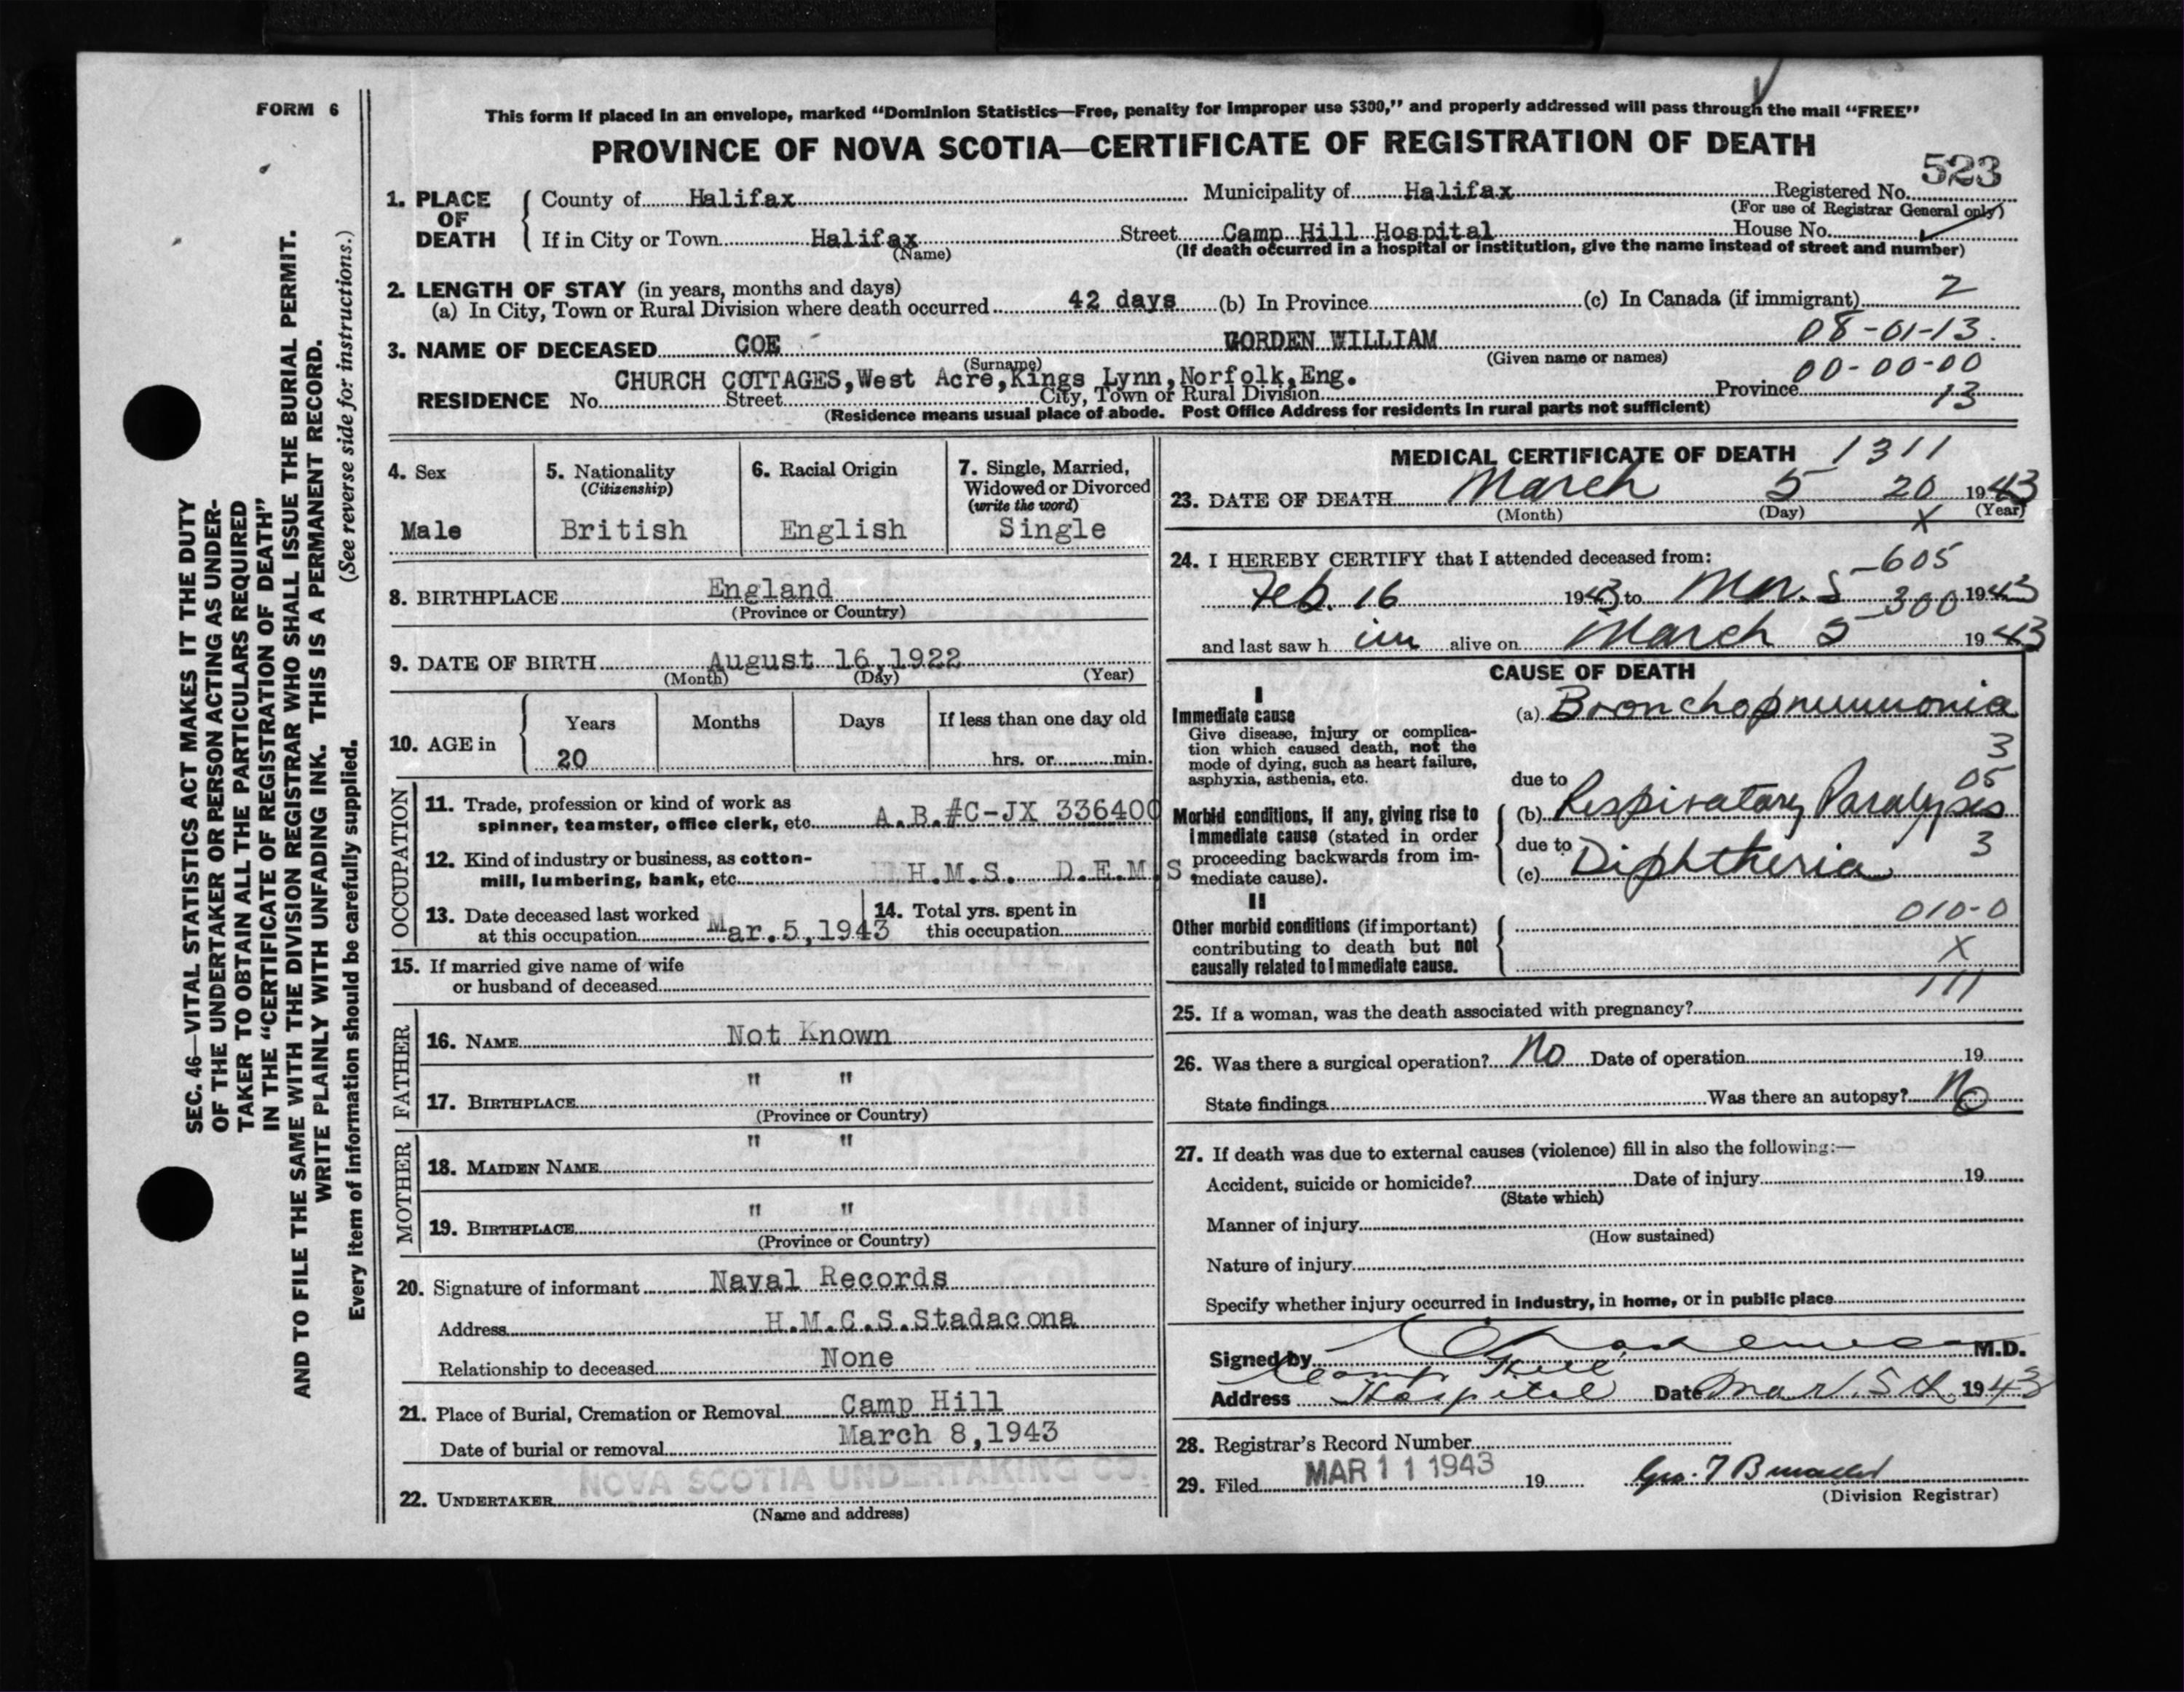 FORM 6
This form if placed in an envelope, marked "Dominion Statistics—Free, penalty for improper use $300," and properly addressed will pass through the mail "FREE"
PROVINCE OF NOVA SCOTIA—CERTIFICATE OF REGISTRATION OF DEATH
523
1. PLACE OF DEATH County of Halifax Municipality of Halifax Registered No.
(For use of Registrar General only)
If in City or Town Halifax Street Camp Hill Hospital House No.
(Name) (If death occurred in a hospital or institution, give the name instead of street and number)
2. LENGTH OF STAY (in years, months and days)
(a) In City, Town or Rural Division where death occurred 42 days (b) In Province (c) In Canada (if immigrant) 2
08-01-13.
3. NAME OF DECEASED COE GORDEN WILLIAM
(Surname) (Given name or names)
00-00-00
CHURCH COTTAGES, West Acre, Kings Lynn, Norfolk, Eng.
RESIDENCE No. Street City, Town or Rural Division Province 13
(Residence means usual place of abode. Post Office Address for residents in rural parts not sufficient)
4. Sex
Male
5. Nationality
(Citizenship)
British
6. Racial Origin
English
7. Single, Married,
Widowed or Divorced
(write the word)
Single
8. BIRTHPLACE England
(Province or Country)
9. DATE OF BIRTH August 16, 1922
(Month) (Day) (Year)
10. AGE in Years Months Days If less than one day old
20 hrs. or min.
OCCUPATION
11. Trade, profession or kind of work as
spinner, teamster, office clerk, etc. A.B.#C-JX 336400
12. Kind of industry or business, as cotton-
mill, lumbering, bank, etc. H.M.S. D.E.M.S
13. Date deceased last worked
at this occupation Mar. 5, 1943
14. Total yrs. spent in
this occupation
15. If married give name of wife
or husband of deceased
FATHER
16. NAME Not Known
" "
17. BIRTHPLACE
(Province or Country)
MOTHER
" "
18. MAIDEN NAME
" "
19. BIRTHPLACE
(Province or Country)
20. Signature of informant Naval Records
Address H.M.C.S. Stadacona
Relationship to deceased None
21. Place of Burial, Cremation or Removal Camp Hill
Date of burial or removal March 8, 1943
NOVA SCOTIA UNDERTAKING CO.
22. UNDERTAKER
(Name and address)
MEDICAL CERTIFICATE OF DEATH 1311
23. DATE OF DEATH March 5 20 1943
(Month) (Day) (Year)
X
24. I HEREBY CERTIFY that I attended deceased from:
605
Feb. 16 1943 to Mar. 5 1943
300
and last saw h im alive on March 5 1943
CAUSE OF DEATH
I
Immediate cause
Give disease, injury or complica-
tion which caused death, not the
mode of dying, such as heart failure,
asphyxia, asthenia, etc.
(a) Bronchopneumonia
3
due to
05
Morbid conditions, if any, giving rise to
immediate cause (stated in order
proceeding backwards from im-
mediate cause).
(b) Respiratory Paralysis
due to 3
(c) Diphtheria
II
010-0
Other morbid conditions (if important)
contributing to death but not
causally related to immediate cause.
X
111
25. If a woman, was the death associated with pregnancy?
26. Was there a surgical operation? No Date of operation 19
State findings Was there an autopsy? No
27. If death was due to external causes (violence) fill in also the following:—
Accident, suicide or homicide? Date of injury 19
(State which)
Manner of injury
(How sustained)
Nature of injury
Specify whether injury occurred in industry, in home, or in public place
Signed by M.D.
Camp Hill
Address Hospital Date Mar. 5th 1943
28. Registrar's Record Number
29. Filed MAR 11 1943 19
(Division Registrar)
SEC. 46—VITAL STATISTICS ACT MAKES IT THE DUTY
OF THE UNDERTAKER OR PERSON ACTING AS UNDER-
TAKER TO OBTAIN ALL THE PARTICULARS REQUIRED
IN THE "CERTIFICATE OF REGISTRATION OF DEATH"
AND TO FILE THE SAME WITH THE DIVISION REGISTRAR WHO SHALL ISSUE THE BURIAL PERMIT.
WRITE PLAINLY WITH UNFADING INK. THIS IS A PERMANENT RECORD.
(See reverse side for instructions.)
Every item of information should be carefully supplied.